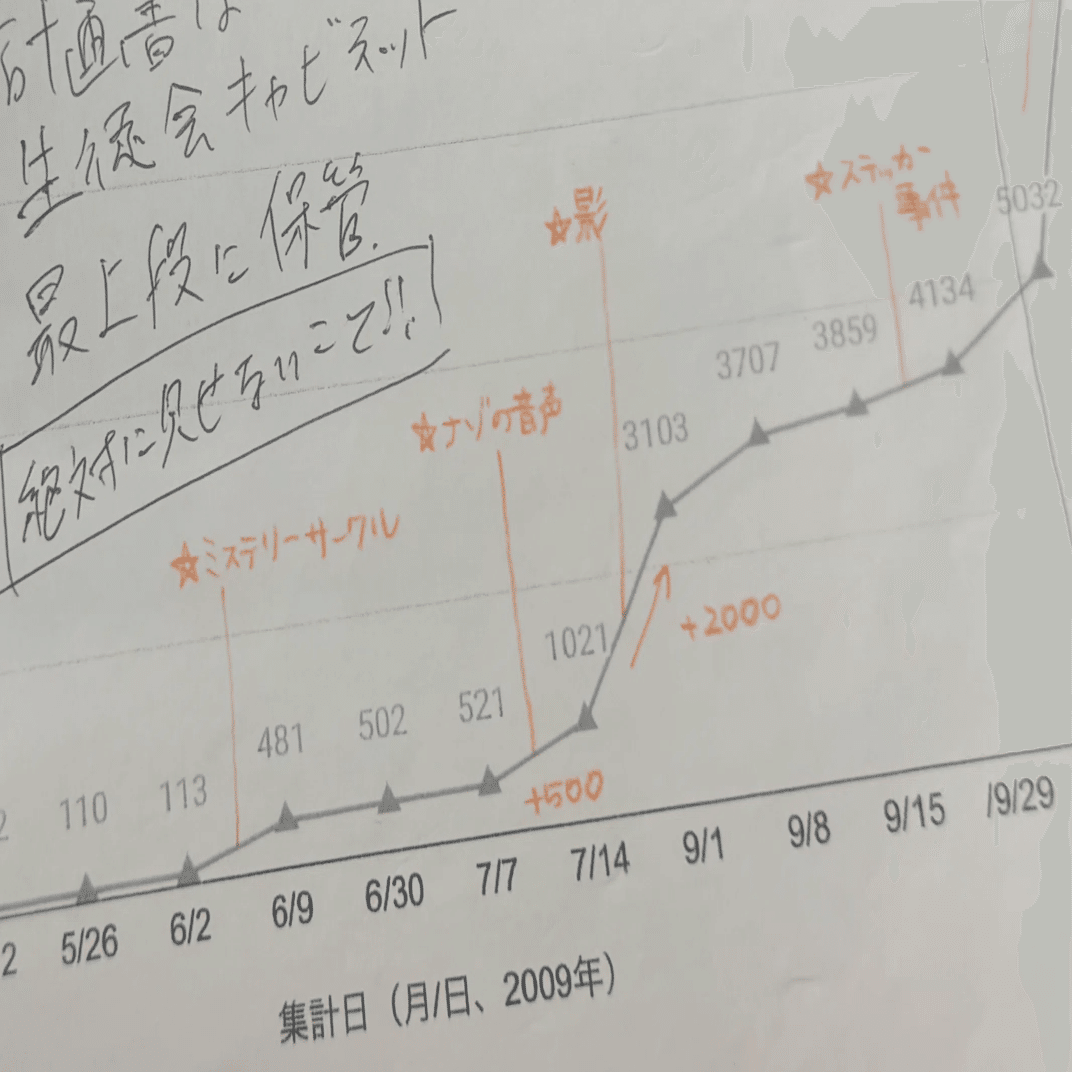 計画書は
生徒会キャビネット
最上段に保管
絶対に見せないこと!!
☆影
☆ステッカー
事件
5032
4134
3859
3707
☆ナゾの音声
3103
☆ミステリーサークル
+2000
1021
521
502
481
+500
113
110
2
5/26
6/2
6/9
6/30
7/7
7/14
9/1
9/8
9/15
/9/29
集計日(月/日、2009年)